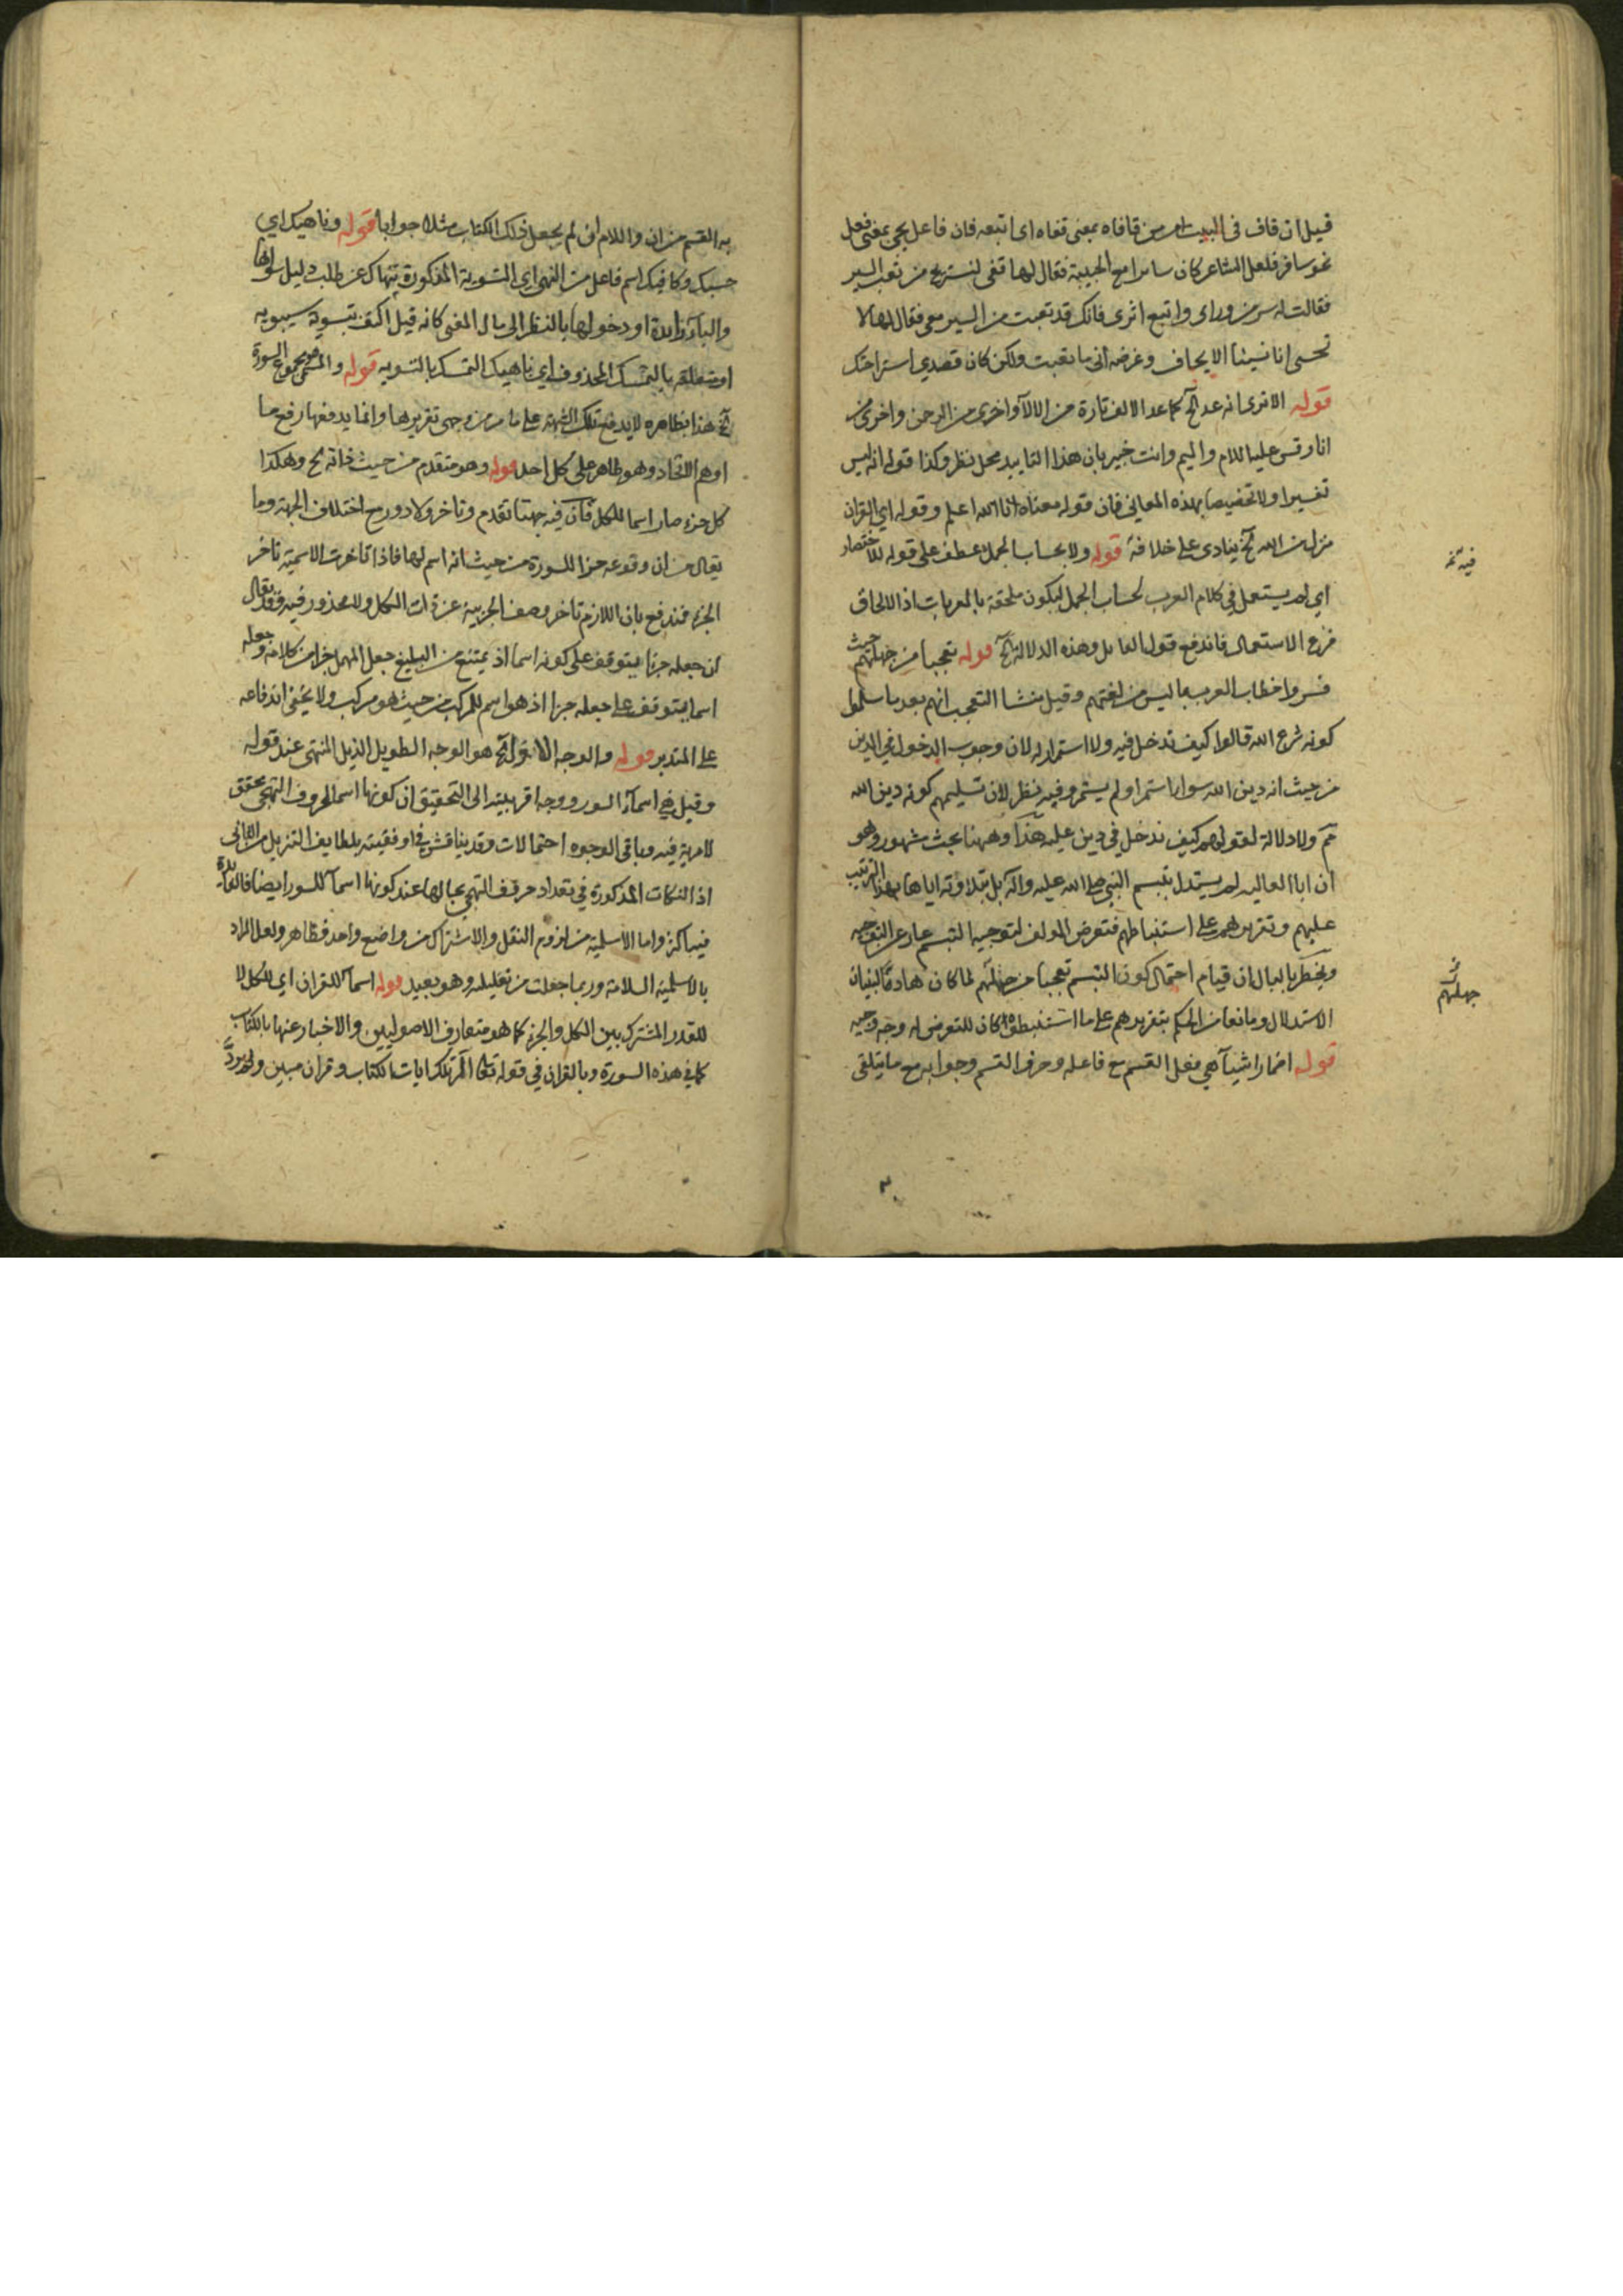 قيل ان قاف في البيت امر من قافاه بمعنى قفاه اى اتبعه فان فاعل يجي بمعنى فعل
نحو سافر فلعل الشاعر كان سايرا مع الحبيبة فقال لها قفى لنستريح من تعب السير
فقالت له سر من وراى واتبع اثرى فانك قد تعبت من السير معى فقال لها لا
تحسبى انا نسينا الايجاف وغرضه انى ما تعبت ولكن كان قصدي استراحتك
قوله الا ترى انه عد الخ كما عد الالف تارة من الالآء واخرى من الرحمن واخرى من
انا وقس عليه اللام والميم وانت خبير بان هذا التاييد محل نظر وكذا قوله انه ليس
تفسيرا ولا تخصيصا بهذه المعاني فان قوله معناه انا الله اعلم وقوله اي القران
منزل من الله الخ ينادى على خلافه قوله ولا بحساب الجمل عطف على قوله للاختصار
اي لم يستعمل في كلام العرب لحساب الجمل ليكون ملحقة بالمعربات اذ الالحاق
فرع الاستعمال فاندفع قول القايل وهذه الدلالة الخ قوله تعجبا من جهلهم حيث
فسروا خطاب العرب بما ليس من لغتهم وقيل منشا التعجب انهم بعد ما سلموا
كونه شرع الله قالوا كيف ندخل فيه ولا استمرار له لان وجوب الدخول في الدين
من حيث انه دين الله سواء استمر او لم يستمر وفيه نظر لان تسليمهم كونه دين الله
ثم ولا دلالة لقولهم كيف ندخل في دين عليه هذا وههنا بحث مشهور وهو
ان ابا العاليه لم يستدل بتبسم النبي صلى الله عليه وآله بل بتلاوته اياها بهذا الترتيب
عليهم وتقريرهم على استنباطهم فتعرض المولف لتوجيه التبسم عار عن التوجيه
ويخطر بالبال ان قيام احتمال كون التبسم تعجبا من جهلهم لما كان هادما لبنيان
الاستدلال ومانعا من الحكم بتقريرهم على ما استنبطوه كان للتعرض له وجه وجيه
قوله اضمار اشيآ هي فعل القسم مع فاعله وحرف القسم وجوابه مع ما يتلقى
فيه تمه
من
جهلهم
به القسم من ان واللام ان لم يجعل ذلك الكتاب مثلا جوابا قوله وناهيك اي
حسبك وكافيك اسم فاعل من النهي اي التسوية المذكورة تنهاك عن طلب دليل سواها
والبآء زايدة او دخولها بالنظر الى مال المعنى كانه قيل اكتف بتسوية سيبويه
او متعلقه بالتمسك المحذوف اي ناهيك التمسك بالتسويه قوله والمسمى هو مجموع السورة
الخ هذا بظاهره لا يدفع تلك الشبهة على ما مر من وجهى تقريرها وانما يدفعها رفع ما
اوهم الاتحاد وهو ظاهر على كل احد قوله وهو متقدم من حيث ذاته الخ وهكذا
كل جزء صار اسما للكل فان فيه جهتا تقدم وتاخر ولا دور مع اختلاف الجهة وما
يقال من ان وقوعه جزا للسورة من حيث انه اسم لها فاذا تاخرت الاسمية تاخر
الجزء فندفع بان اللازم تاخر وصف الجزيية عن ذات الكل ولا محذور فيه وقد يقال
ان جعله جزا يتوقف على كونه اسما اذ يمتنع من البليغ جعل المهمل جزا من كلامه وجعله
اسما يتوقف على جعله جزا اذ هو اسم للمركب من حيث هو مركب ولا يخفى اندفاعه
على المتدبر قوله والوجه الاول الخ هو الوجه الطويل الذيل المنتهى عند قوله
وقيل هي اسمآء السور ووجه اقربيته الى التحقيق ان كونها اسما لحروف التهجي محقق
لا مرية فيه وباقى الوجوه احتمالات وقد يناقش في اوفقيته بلطايف التنزيل من الثانى
اذ النكات المذكورة في تعداد حروف التهجي بحالها عند كونها اسمآ للسور ايضا فالفايدة
فيه اكثر واما الاسلمية من لزوم النقل والاشتراك من واضع واحد فظاهر ولعل المراد
بالاسلمية السلامة وربما جعلت من تعليلية وهو بعيد قوله اسمآ للقران اي للكل لا
للقدر المشترك بين الكل والجزء كما هو متعارف الاصوليين والاخبار عنها بالكتاب
كما في هذه السورة وبالقران في قوله تعالى الر تلك ايات الكتاب وقران مبين ولم يرد